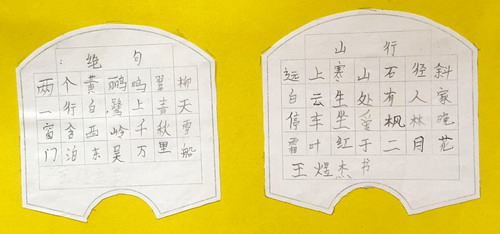 绝句
两个黄鹂鸣翠柳
一行白鹭上青天
窗含西岭千秋雪
门泊东吴万里船
山行
远上寒山石径斜
白云生处有人家
停车坐爱枫林晚
霜叶红于二月花
王煜杰书